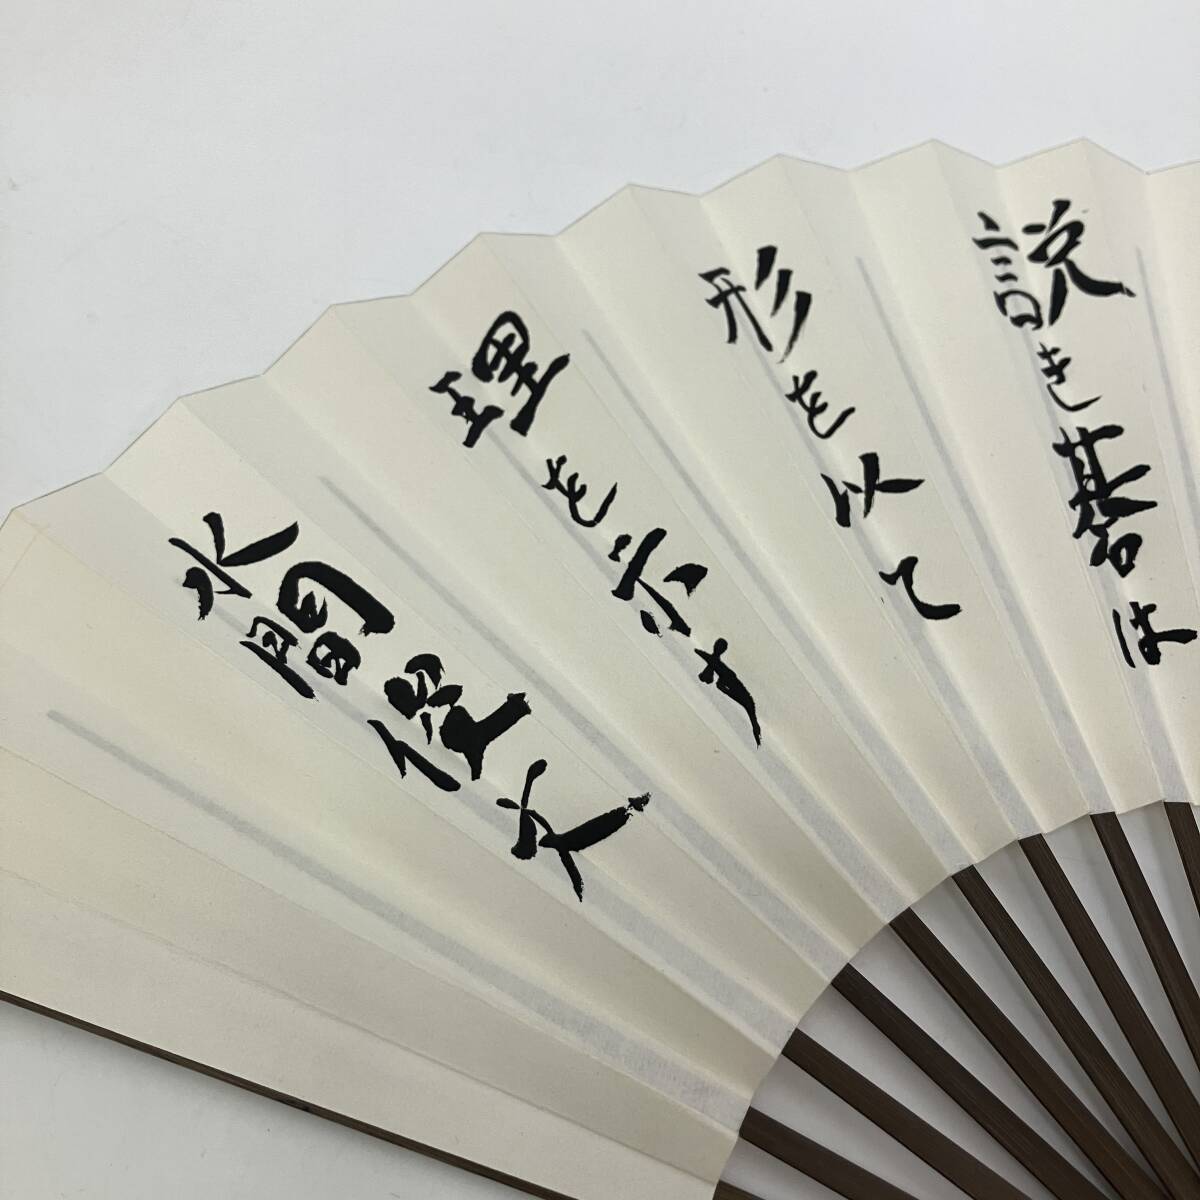 説き碁は
形を以て
理を示す
水間俊文